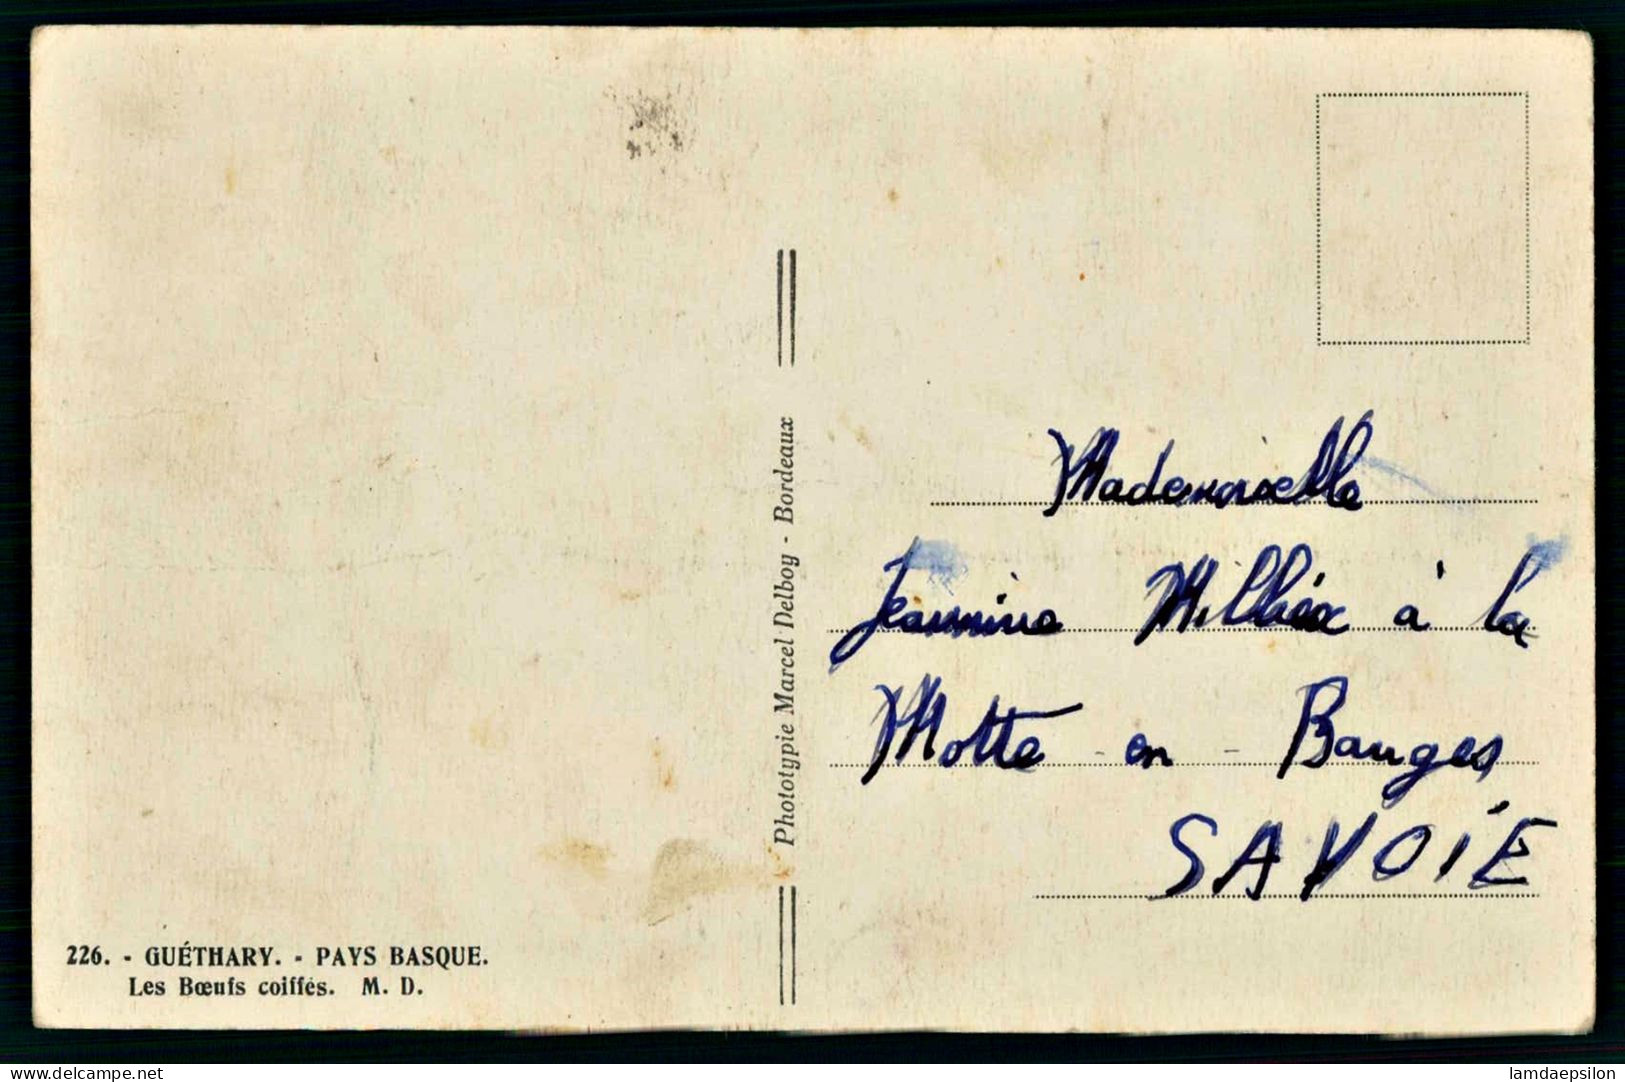 Mademoiselle
Jeannine Milliex à la
Motte - en - Bauges
SAVOIE
Phototypie Marcel Delboy - Bordeaux
226. - GUÉTHARY. - PAYS BASQUE.
Les Bœufs coiffés. M. D.
delcampe.net
lamdaepsilon